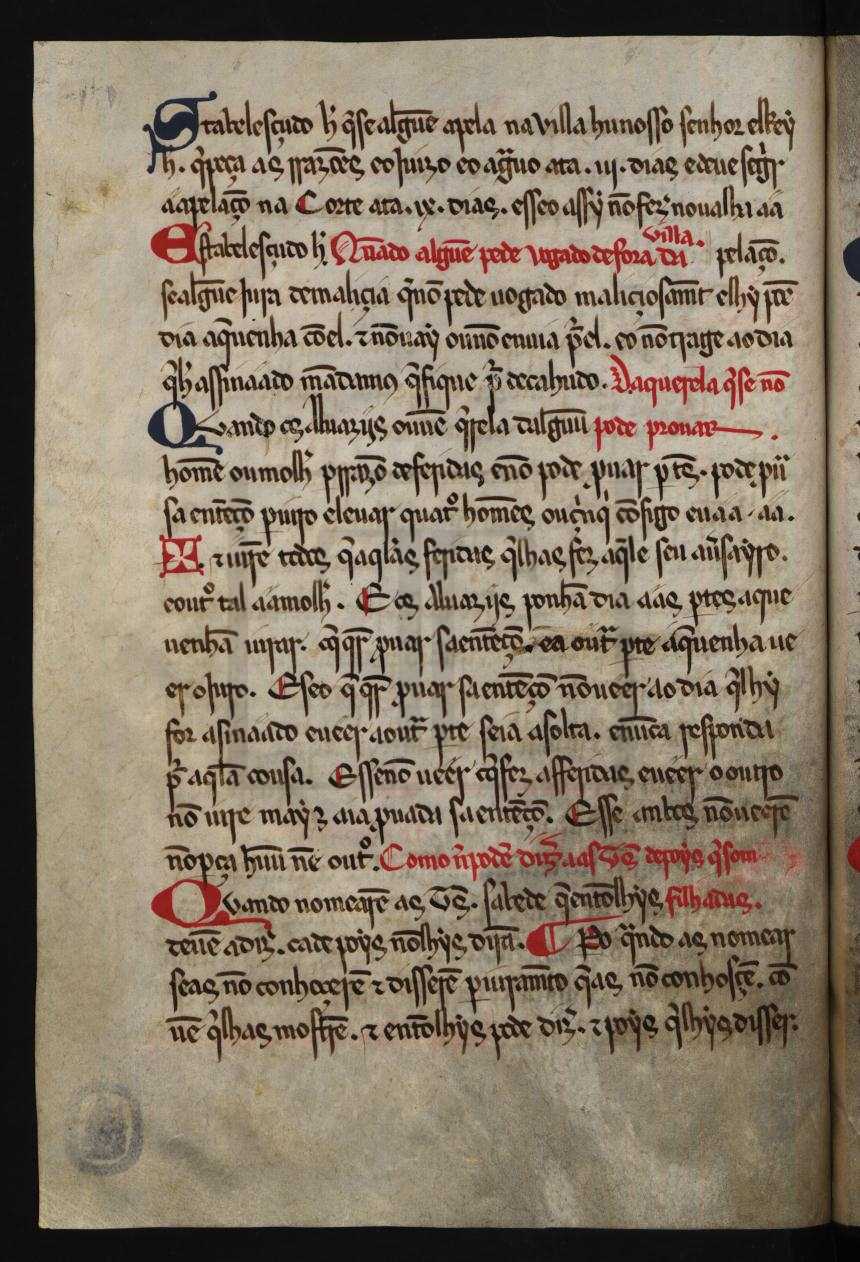 Stabelesçudo h̃ q̃ se algũe apela na villa hu nosso senhor elRey
h. q̃ peça as rrazões eo Juizo eo ag̃uo ata .iii. dias e deue segir
a apelaçõ na Corte ata .ix. dias. esseo assy nõ fez nõ ualha aa
Estabelesçudo h̃ Quãdo algũe pede uogado de fora da villa. pelaçõ.
se algũe Jura de maliçia q̃ nõ pede uogado maliçiosamt̃ e lhy põe
dia a q̃ uenha cõ el. ⁊ nõ uay ou nõ enuia p̃ el. eo nõ trage ao dia
q̃ lh̃ assinaado mãdamos q̃ fique p̃ decahudo. Da querela q̃ se nõ
Quando os Aluaziis ouuẽ q̃rela dalgũu pode prouar.
homẽ ou molh̃ p̃ rrazõ de feridas e nõ pode p̃uar p̃tẽs. pode p̃u
sa entẽçõ p iuro e leuar quat̃o homẽs cõsigo
⁊ iurẽ todos q̃ aq̃las feridas q̃ lhas fez aq̃le seu
eout̃o tal aa molh̃. E os Aluaziis ponhã dia aas p̃tes a que
uenhã iurar. q̃ q̃r p̃uar sa entẽçõ. ea out̃ p̃te a q̃ uenha ue
er o Juro. E seo q̃ q̃r p̃uar sa entẽçõ nõ ueer ao dia q̃ lhy
for asinaado e ueer a out̃ p̃te seia asolta. e nũca responda
p̃ aq̃la cousa. E sse nõ ueer q̃ fez as feridas e ueer o outro
nõ iure mays aia p̃uada sa entẽçõ. E sse anbos nõ ueerẽ
nõ pça hũu nẽ out̃o. Como ñ podẽ diz̃ aas t̃s depoys q̃ som
Quando nomearẽ as t̃s. sabede q̃ entõ lhys filhadas.
deuẽ a diz̃. ca depoys nõ lhys dirã. Po q̃ndo as nomear
se as nõ conhoçerẽ ⁊ disserẽ p iuramẽto q̃ as nõ conhosçẽ. cõ
uẽ q̃ lhas mostrẽ. ⁊ entõ lhys pode diz̃. ⁊ poys q̃ lhys disser.